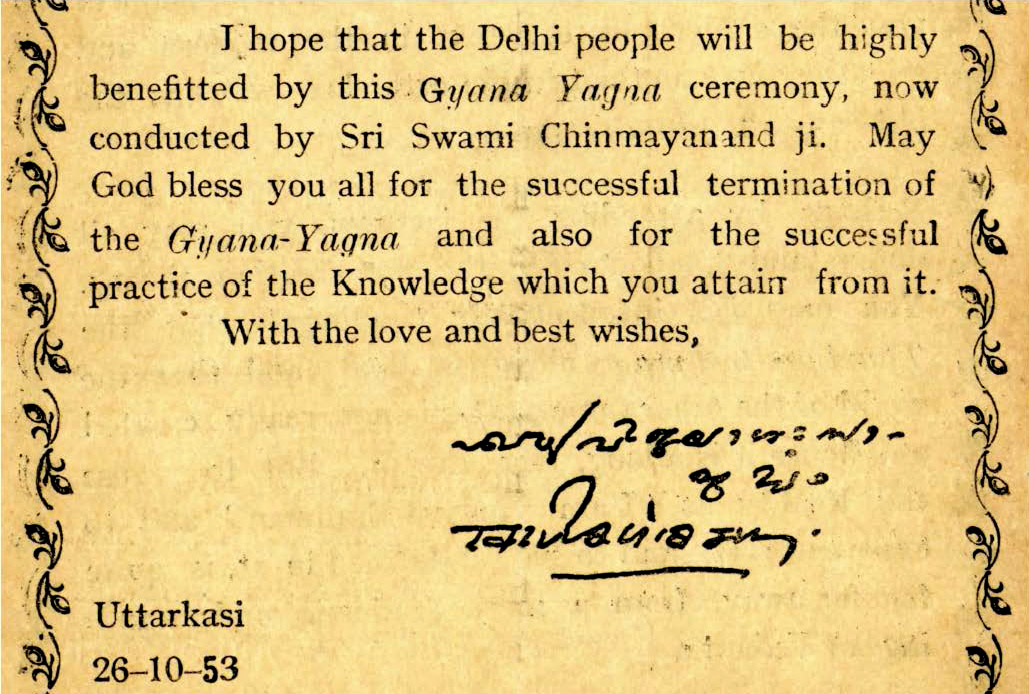 I hope that the Delhi people will be highly
benefitted by this Gyana Yagna ceremony, now
conducted by Sri Swami Chinmayanand ji. May
God bless you all for the successful termination of
the Gyana-Yagna and also for the successful
practice of the Knowledge which you attain from it.
With the love and best wishes,
Uttarkasi
26-10-53